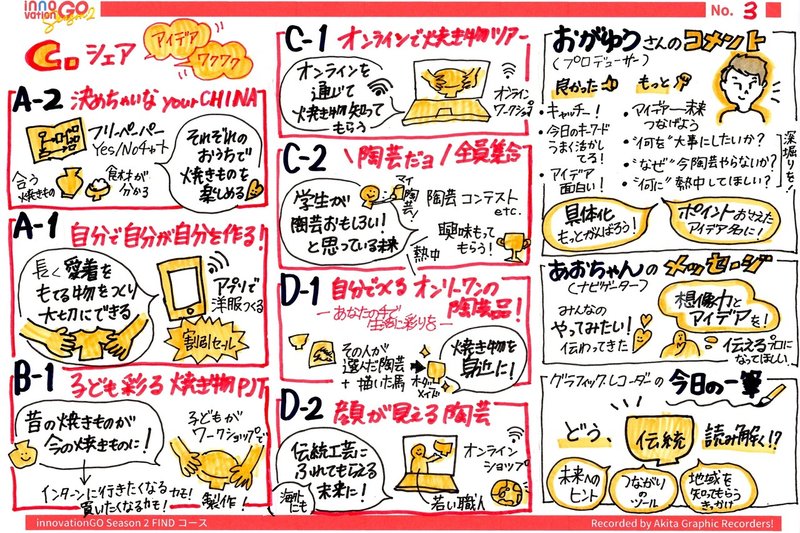 innovationGO
Season2
No. 3
C. シェア
アイデア
ワクワク
A-2 決めちゃいな your CHINA
フリーペーパー
Yes/Noチャート
合う
焼きもの
食材が
分かる
それぞれの
おうちで
焼きものを
楽しめる
A-1 自分で自分が自分を作る!
長く愛着を
もてる物をつくり
大切にできる
アプリで
洋服つくる
割引セール
B-1 子ども彩る焼き物PJT
昔の焼きものが
今の焼きものに!
子どもが
ワークショップで
製作!
インターンに行きたくなるカモ!
買いたくなるカモ!
C-1 オンラインで焼き物ツアー
オンラインを
通じて
焼き物知って
もらう
オンライン
ワークショップ
C-2 \陶芸だョ/全員集合
学生が
陶芸おもしろい!
と思っている未来
マイ
陶芸!
陶芸コンテスト
etc.
興味もって
もらう!
熱中
D-1 自分でつくるオンリーワンの
陶芸品!
―あなたの手で
生活に彩りを―
その人が
選んだ陶芸
+描いた馬
焼き物を
身近に!
D-2 顔が見える陶芸
伝統工芸に
ふれてもらえる
未来に!
海外
にも
オンライン
ショップ
若い職人
おがゆうさんのコメント
(プロデューサー)
良かった
・キャッチー!
・今日のキーワード
うまく活かし
てる!
・アイデア
面白い!
もっと
・アイデア―未来
つなげよう
・"何を"大事にしたいか?
・"なぜ"今陶芸やらないか?
・"何に"熱中してほしい?
深堀りを!
具体化
もっとがんばろう!
ポイントおさえた
アイデア名に!
あおちゃんのメッセージ
(ナビゲーター)
みんなの
やってみたい!
伝わってきた
想像力と
アイデアを!
伝えるプロに
なってほしい
グラフィックレコーダーの今日の一筆
どう、伝統 読み解く!?
未来への
ヒント
つながり
のツール
地域を
知ってもらう
きっかけ
innovationGO Season 2 FIND コース
Recorded by Akita Graphic Recorders!